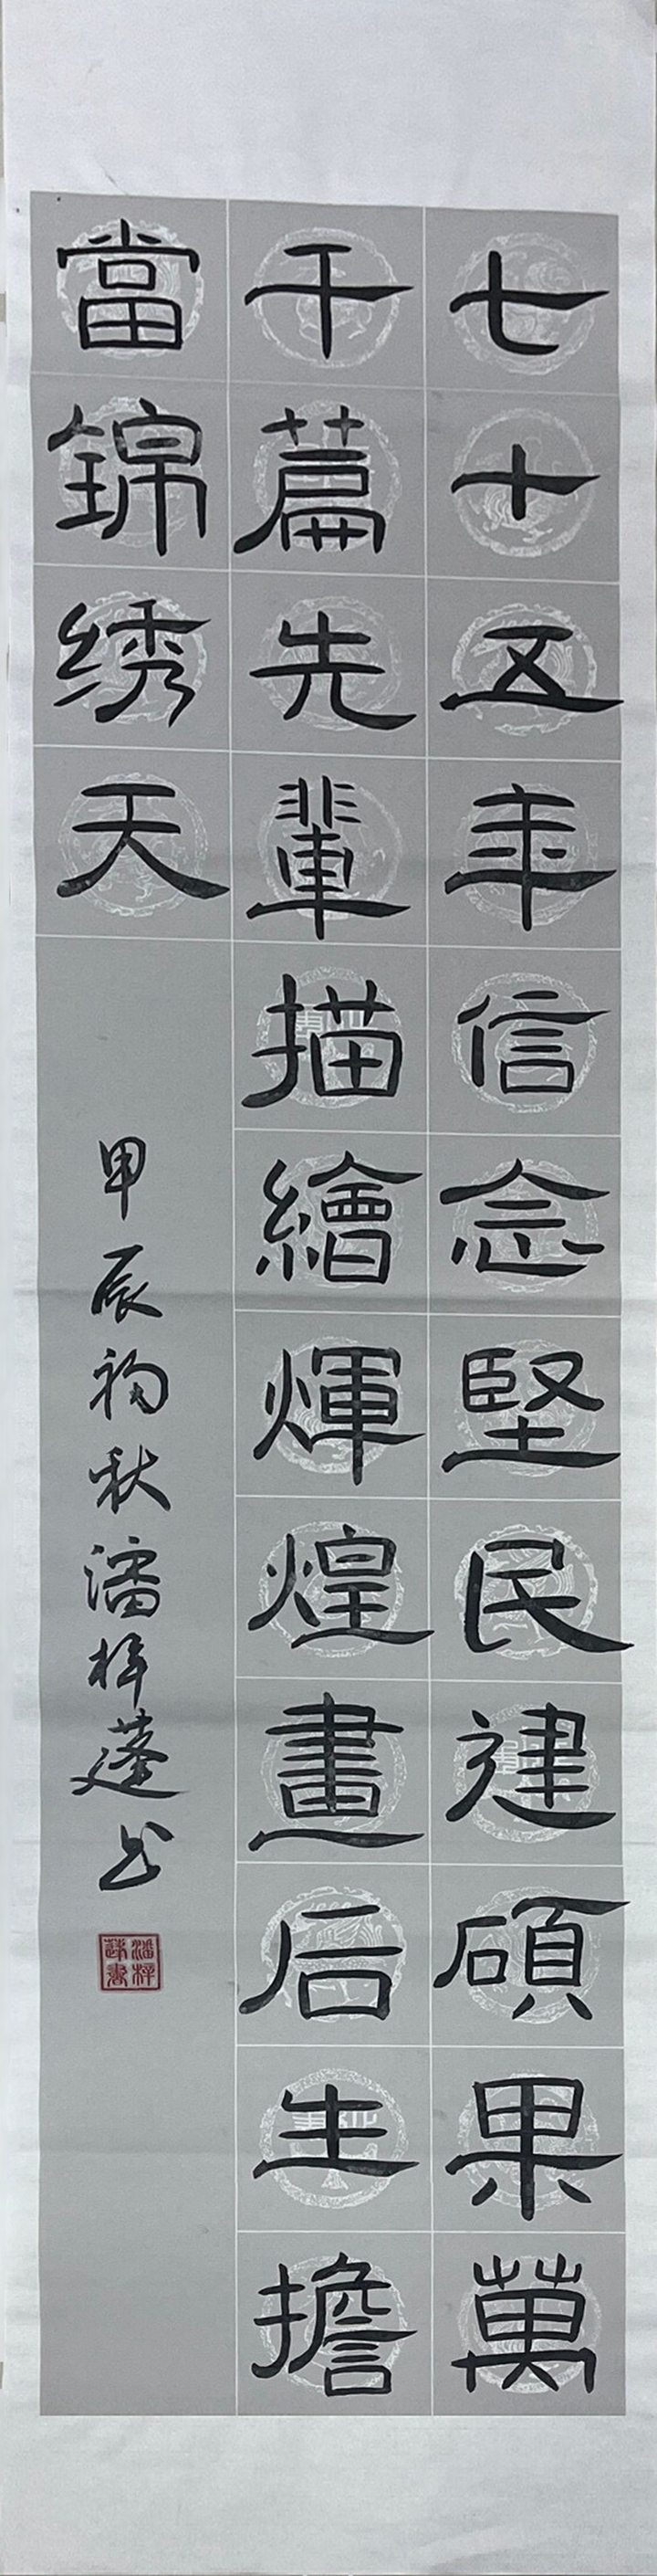 七十五年信念堅民建碩果萬
千篇先輩描繪煇煌畫后生擔
當錦绣天
甲辰初秋潘梓蓬书
潘梓蓬書